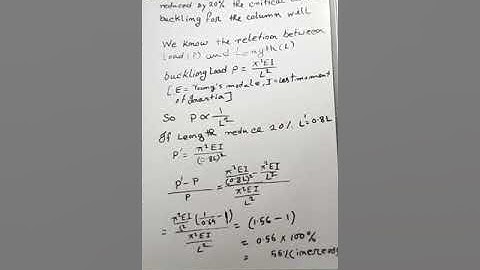 reduced by 20% the critical
buckling for the column will
We know the reletion between
Load (P) and Length (L)
buckling Load P = π²EI/L²
[E = Young's module, I = Lest moment
of Inertia]
So P ∝ 1/L²
If Length reduce 20% L' = 0.8L
P' = π²EI/(0.8L)²
(P' - P)/P = (π²EI/(0.8L)² - π²EI/L²)/(π²EI/L²)
= (π²EI/L² (1/0.64 - 1))/(π²EI/L²) = (1.56 - 1)
= 0.56 × 100%
= 56%